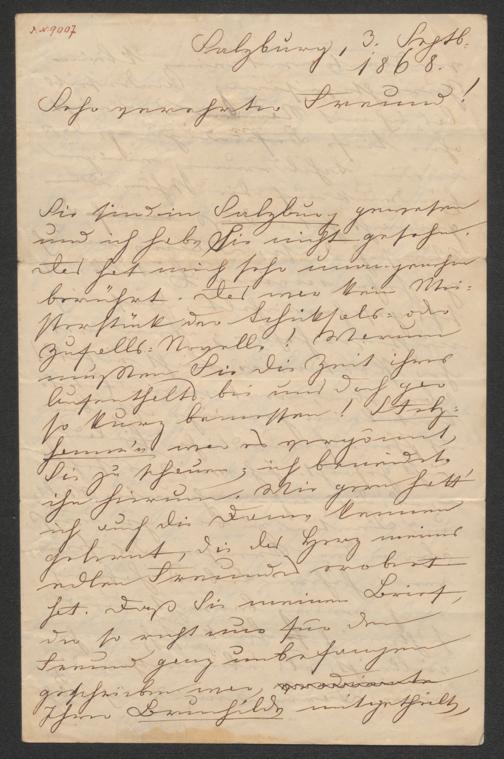 N.N. 9007
Salzburg, 3. Septb.
1868.
Sehr verehrter Freund!
Sie sind in Salzburg gewesen
und ich habe Sie nicht gesehen.
Das hat mich sehr unangenehm
berührt. Das war kein Mei-
sterstück der Schicksals- oder
Zufalls-Novelle! Warum
mußten Sie die Zeit ihres
Aufenthalts bei uns doch gar
so kurz bemessen! Stelz-
hamer'n war es vergönnt,
Sie zu schauen; ich beneidete
ihn hierum. Wie gern hätt'
ich auch die Dame kennen
gelernt, die das Herz meines
edlen Freundes erobert
hat. Daß Sie meinen Brief,
der so recht nur für den
Freund ganz unbefangen
geschrieben war,
Ihrer Brunhilde mitgetheilt,